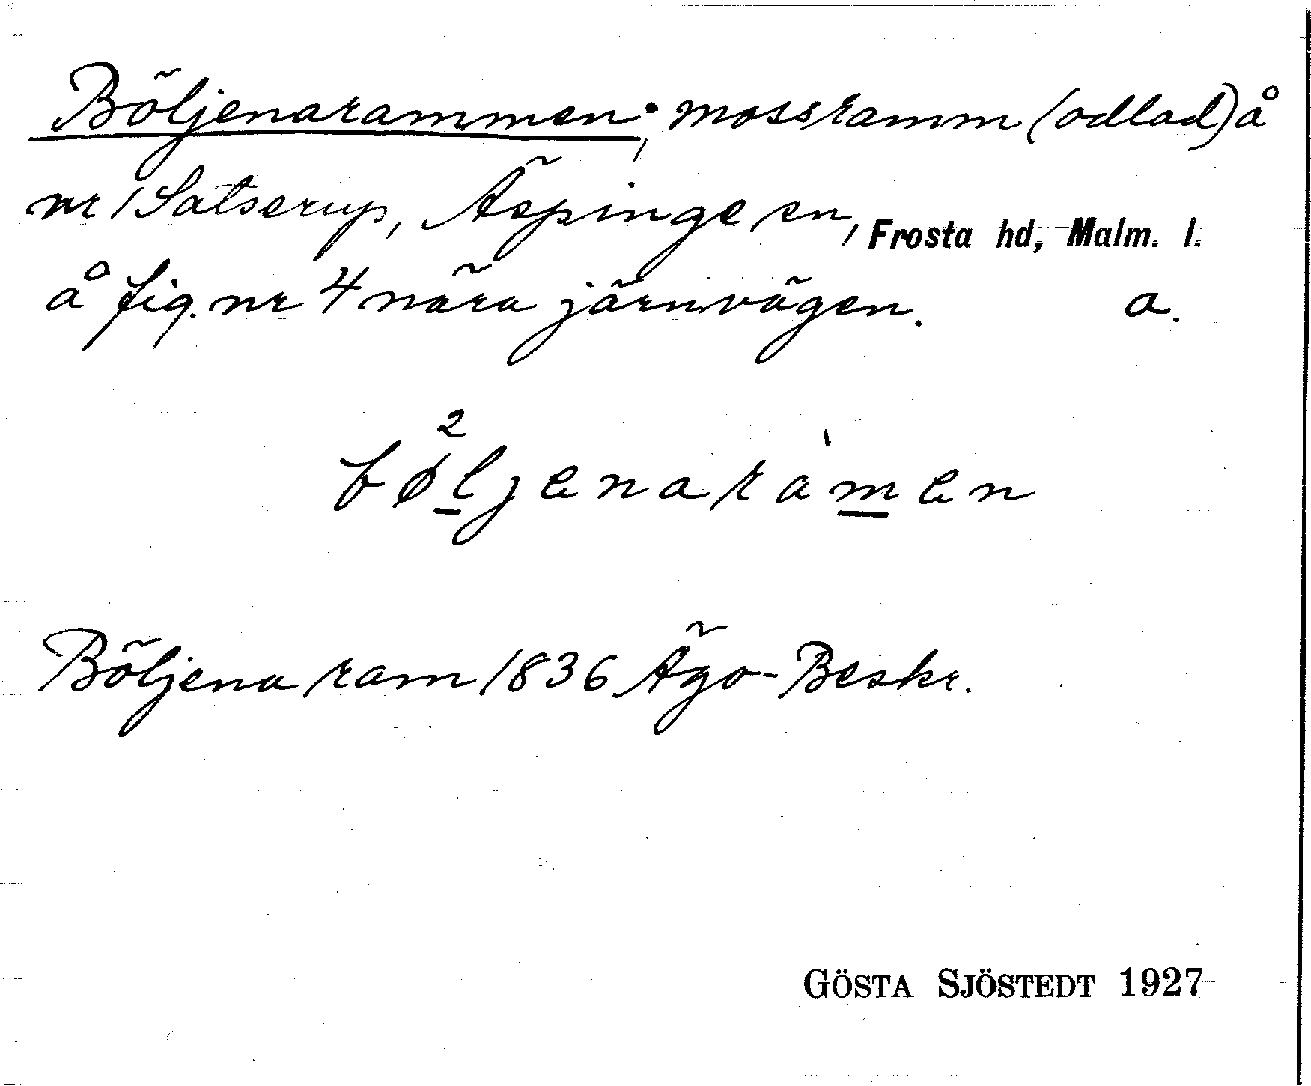 Böljenarammen; mossramm (odlad) å
nr 1 Satserup, Äspinge sn, Frosta hd, Malm. l.
å fig. nr 4 nära järnvägen. a.
bø²ljenaràmen
Böljena ram 1836 Ägo-Beskr.
GÖSTA SJÖSTEDT 1927